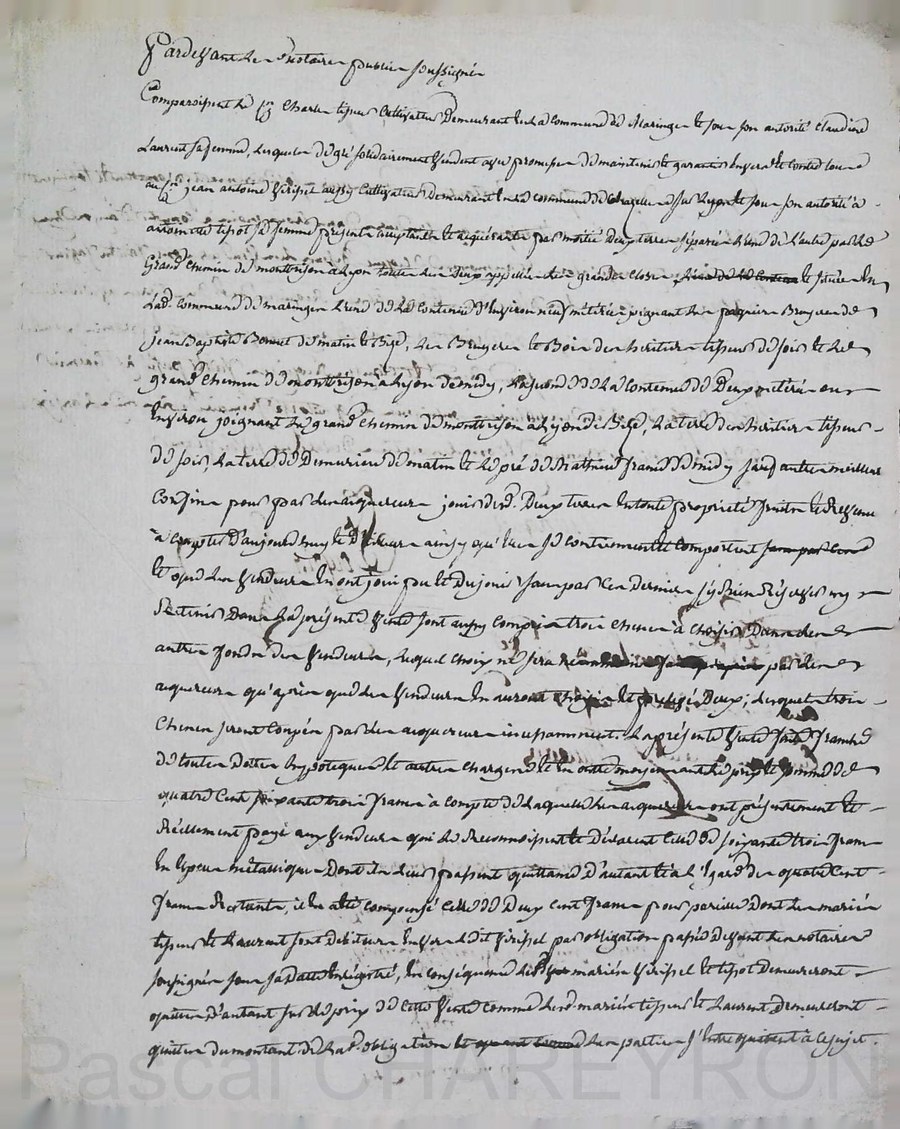 Pardevant les Notaires publics soussignés
Comparoissent le Cn Charles tisseur Cultivateur Demeurant en la commune de Maringes et sous son autorité Claudine
Laurent sa femme, lesquels de gré solidairement vendent avec promesse de maintenir et garantir envers et contre tous
au Cn jean antoine Viricel aussy Cultivateur Demeurant en la commune de chazelles sur Lyon et sous son autorité à
antoinette tisot sa femme présents acceptants et acquerants par moitié Deux terres séparées l'une de l'autre par le
Grand chemin de montbrison à Lyon toutes les deux appellées les grandes closes et situées en
lad. commune de maringes L'une de la contenue d'Environ neuf métérées joignant les Bruyeres de
jean Baptiste Bonnet de matin et Bize, les Bruyeres et Bois des héritiers tisseur de soir et le
grand chemin de montbrison à Lyon de midy, la seconde de la contenue de Deux métérées ou
Environ joignant le grand chemin de montbrison à Lyon de Bize, la terre des héritiers tisseur
de soir, la terre de Demurieu de matin et le pré de Mathieu de midy sauf autres meilleurs
Confins pour par les acquereurs jouir desd. Deux terres en toute propriété fruits et revenus
à compter d'aujourd'huy et D'ailleurs ainsy qu'elles se contiennent et comportent
et que les vendeurs en ont joui pu et du jouir sans par ces derniers s'y Rien réserver ny
Retenir Dans la présente vente sont aussy compris trois chenes à choisir Dans les
autres fonds des vendeurs, lequel choix ne sera par les
acquereurs qu'après que les vendeurs en auront choisi et Deux; lesquels trois
chenes seront coupés par les acquereurs incessamment. La présente vente franche
de toutes Dettes hypoteques et autres charges et en outre moyennant le prix et somme de
quatre Cent soixante trois francs à compte de laquelle les acquereurs ont présentement et
Réellement payé aux vendeurs qui le reconnoissent et Déclarent celle de soixante trois francs
En Espece métallique Dont ils leur passent quittance D'autant et à L'Egard des quatre Cent
francs Restants, il en a été compensé celle de Deux cent francs pour pareille Dont les mariés
tisseur et Laurent sont débiteurs Envers led. Viricel par obligation passé Devant les notaires
soussignés sous sa datte Enrégistré, En conséquence les mariés Viricel et tisot Demeureront
quittes D'autant sur le prix de cette vente comme lesd. mariés tisseur et Laurent Demeureront
quittes du montant de lad. obligation les parties s'entrequittent à ce sujet.
Pascal CHAREYRON